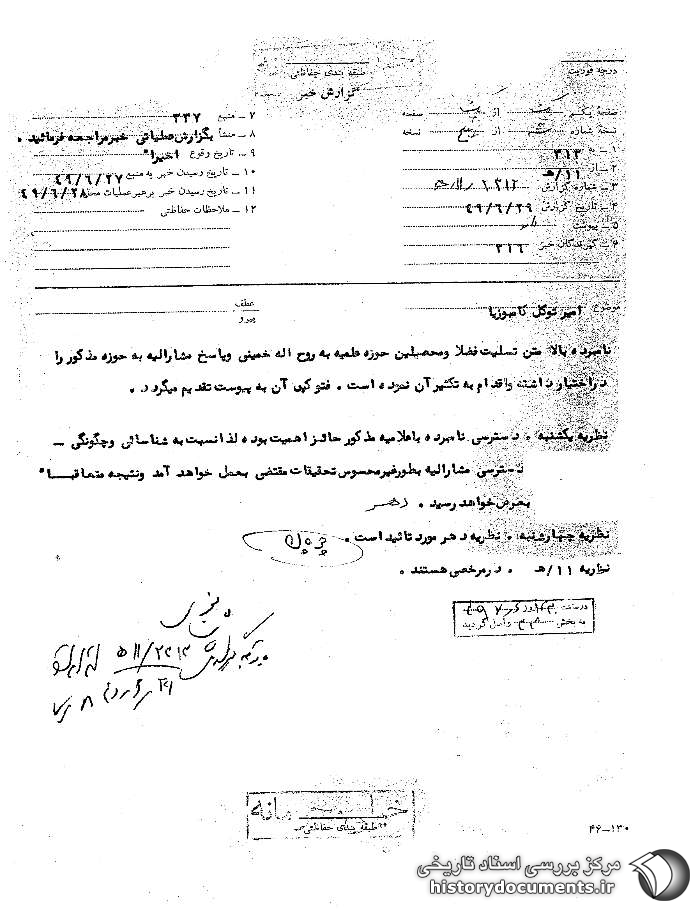 طبقه بندی حفاظتی
گزارش خبر
درجه فوریت
صفحه یکم از صفحه
نسخه شماره از نسخه
۱ - به ۳۱۲
۲ - از ۱۱/ه
۳ - شماره گزارش
۴ - تاریخ گزارش ۴۹/۶/۲۹
۵ - پیوست
۶ - گیرندگان خبر ۳۱۶
۷ - منبع ۳۳۷
۸ - منشأ بگزارش عملیاتی خبر مراجعه فرمائید .
۹ - تاریخ وقوع اخیرا"
۱۰ - تاریخ رسیدن خبر به منبع ۴۹/۶/۲۷
۱۱ - تاریخ رسیدن خبر برهبر عملیات ۴۹/۶/۲۸
۱۲ - ملاحظات حفاظتی
موضوع امیر توکل کامبوزیا
عطف
پیرو
نامبرده بالا متن تسلیت فضلا ومحصلین حوزه علمیه به روح اله خمینی وپاسخ مشارالیه به حوزه مذکور را
در اختیار داشته واقدام به تکثیر آن نموده است . فتوکپی آن به پیوست تقدیم میگردد .
نظریه یکشنبه . دسترسی نامبرده باعلامیه مذکور حائز اهمیت بوده لذا نسبت به شناسائی وچگونگی -
دسترسی مشارالیه بطور غیر محسوس تحقیقات مقتضی بعمل خواهد آمد ونتیجه متعاقبا"
بعرض خواهد رسید . دهر
نظریه چهارشنبه . نظریه دهر مورد تائید است .
نظریه ۱۱/ه . در مرخصی هستند .
در ساعت روز
به بخش واصل گردید
خیلی محرمانه
طبقه بندی حفاظتی
۴۶-۱۳۰
مرکز بررسی اسناد تاریخی
historydocuments.ir